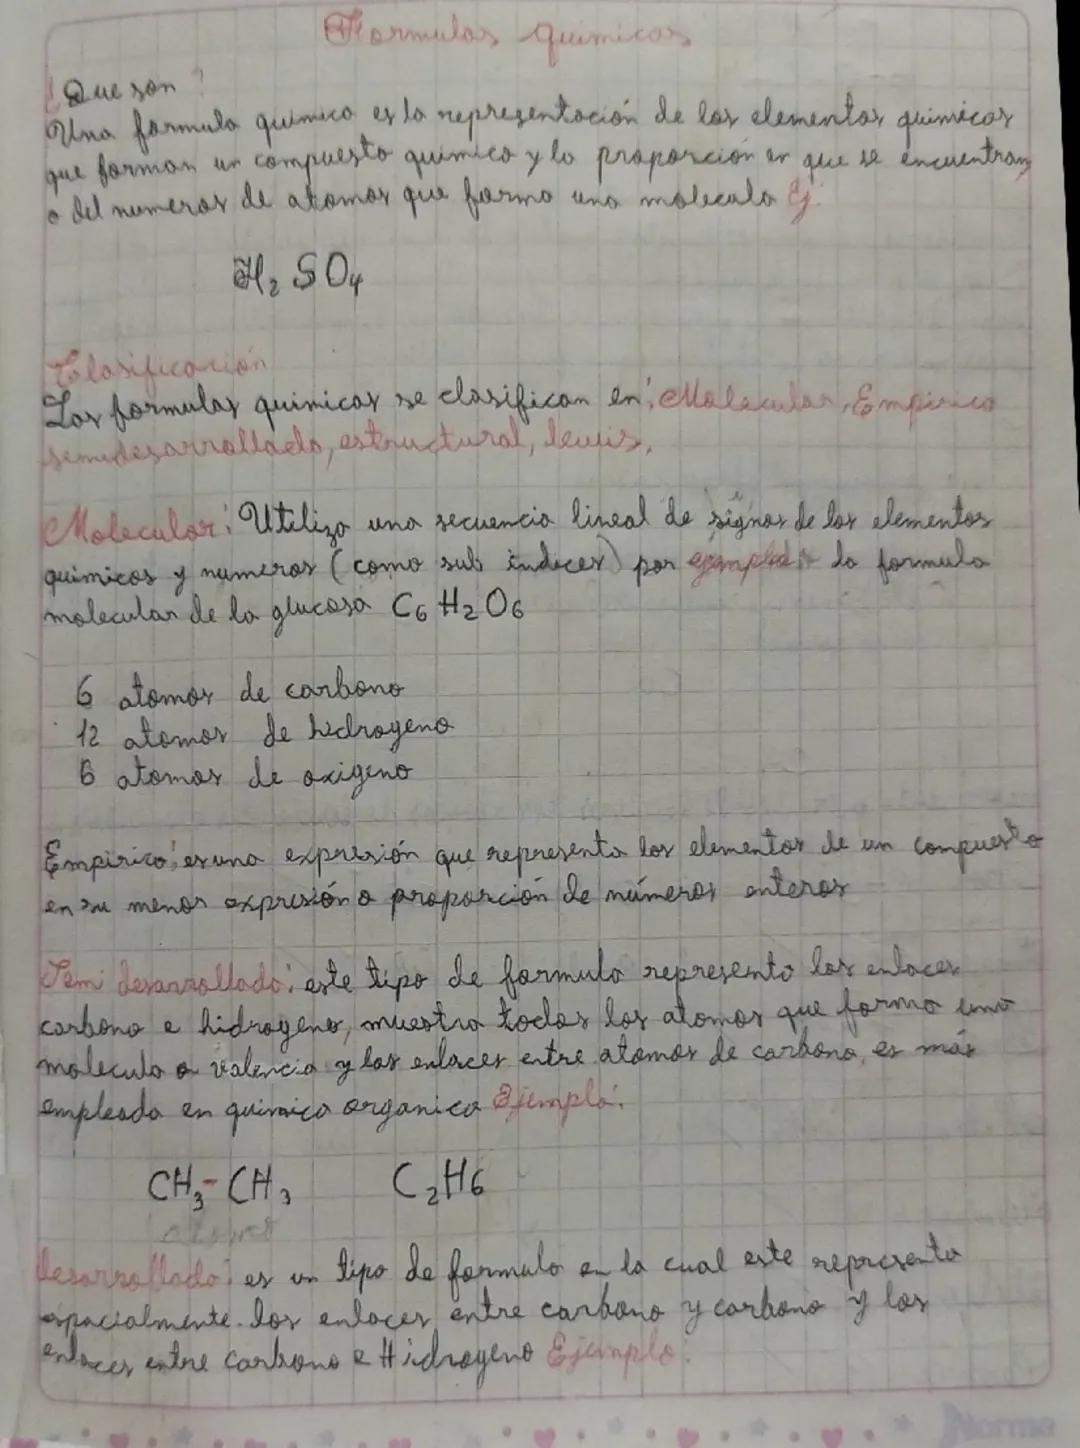 Formulas quimicas
¿Que son?
Una formula quimica es la representación de los elementos quimicos
que forman un compuesto quimico y la proporción en que se encuentran,
o del numeros de atomos que forma una molecula Ej:
H₂ SO₄
Clasificación
Las formulas quimicas se clasifican en: Molecular, Empirica
semidesarrollada, estructural, lewis.
Molecular: Utiliza una secuencia lineal de signos de los elementos
quimicos y numeros (como sub indices) por ejemplo: la formula
molecular de la glucosa C₆ H₂ O₆
6 atomos de carbono
12 atomos de hidrogeno
6 atomos de oxigeno
Empirica: es una expresión que representa los elementos de un compuesto
en su menor expresión o proporción de números enteros
Semi desarrollada: este tipo de formula representa los enlaces
carbono e hidrogeno, muestra todos los atomos que forma una
molecula o valencia y los enlaces entre atomos de carbono, es más
empleada en quimica organica Ejemplo:
CH₃-CH₃ C₂H₆
desarrollada: es un tipo de formula en la cual este representa
espacialmente los enlaces entre carbono y carbono y los
enlaces entre carbono e Hidrogeno Ejemplo:
Norma